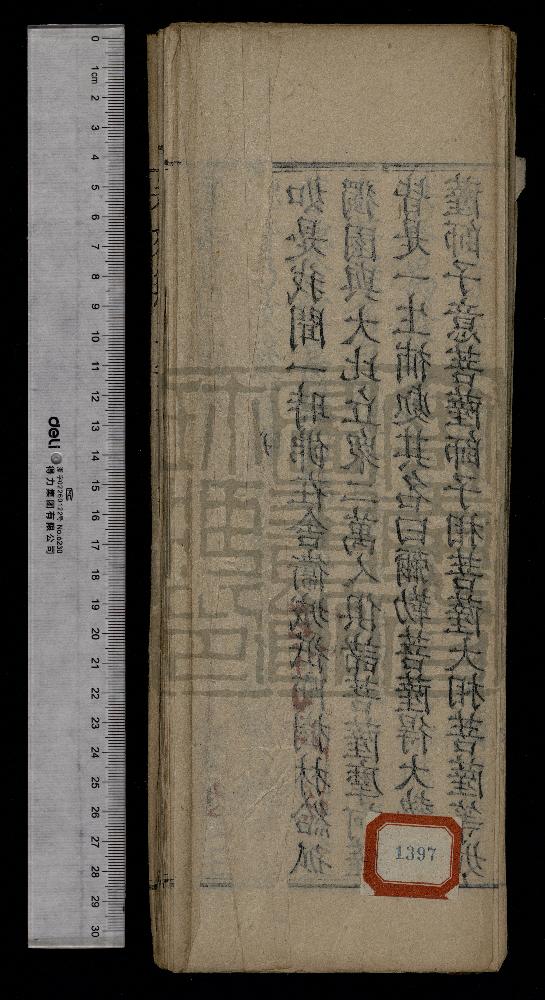 如是我聞一時佛在舍衛城祇陀樹林給孤
獨園與大比丘衆二萬人俱諸菩薩摩訶薩
皆是一生補處其名曰彌勒菩薩得大勢
薩師子意菩薩師子相菩薩大相菩薩等
1397
0 1cm 2 3 4 5 6 7 8 9 10 11 12 13 14 15 16 17 18 19 20 21 22 23 24 25 26 27 28 29 30
deli
No.6230
得力集团有限公司